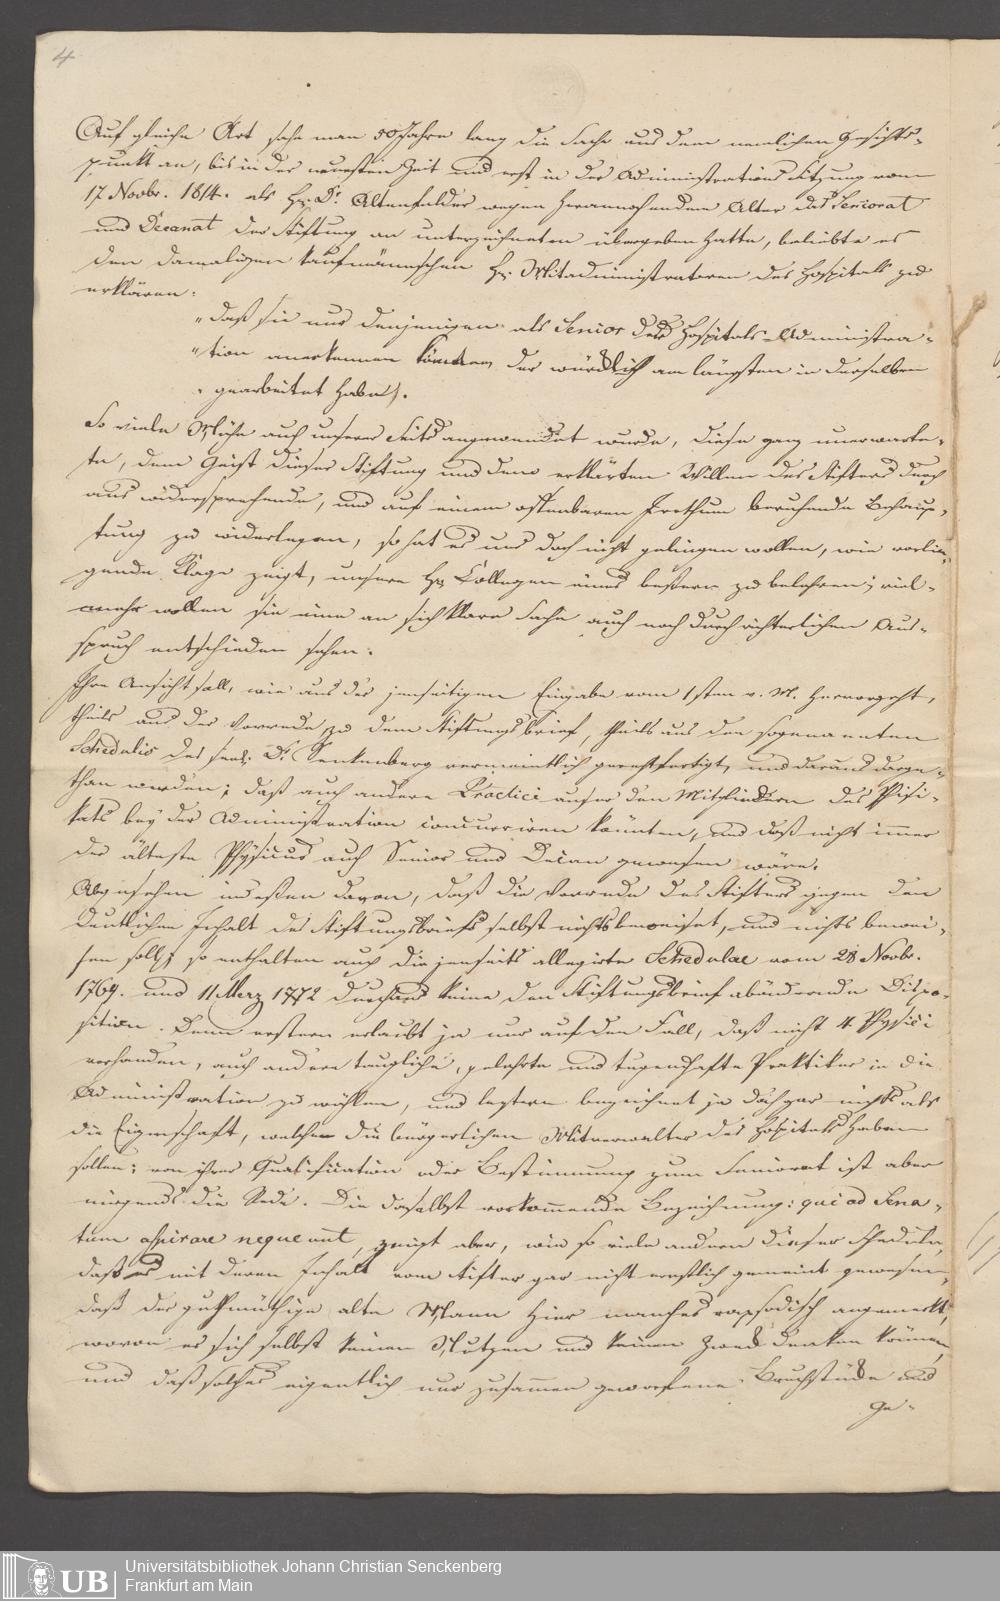 4
Auf gleiche Art sahe man 50 Jahre lang die Sache aus dem nemlichen Gesichts-
punkt an, bis in der neuesten Zeit und erst in der Administrations Sitzung vom
17 Novbr. 1814. als Hr. Dr. Altenfelder wegen herannahenden Alter das Seniorat
und Decanat der Stiftung an unterzeichneten übergeben hatte, beliebte es
den damaligen kaufmännischen Hr. Mitadministratoren des Hospitals zu
erklären:
"daß sie nur denjenigen als Senior der Hospitals-Administra-
"tion anerkennen könnten, der würklich am längsten in derselben
"gearbeitet habe.
So viele Mühe auch unserer Seits angewendet wurde, diese ganz unerwarte-
te, dem Geist dieser Stiftung und dem erklärten Willen des Stifters durch
aus widersprechende, und auf einem offenbaren Irrthum beruhende Behaup-
tung zu widerlegen, so hat es uns doch nicht gelingen wollen, wie vorlie-
gende Klage zeigt, unsere Hr. Collegen eines bessern zu belehren; viel-
mehr wollen sie eine an sich klare Sache auch noch durch richterlichen Aus-
spruch entschieden sehen.
Ihre Ansicht soll, wie aus der jenseitigen Eingabe vom 1sten v. M. hervorgeht,
theils aus der Vorrede zu dem Stiftungsbrief, theils aus den sogenannten
Schedulis des seel. Dr. Senkenberg vermeintlich gerechtfertigt, und daraus darge-
than werden; daß auch andere Practici ausser den Mitgliedern des Phisi-
kats bey der Administration concurriren könnten, und daß nicht immer
der älteste Physicus auch Senior und Decan gewesen wäre.
Abgesehen indessen davon, daß die Vorrede des Stifters gegen den
deutlichen Inhalt des Stiftungsbriefs selbst nichts beweiset, und nichts bewei-
sen soll; so enthalten auch die jenseits allegirte Schedulae vom 28 Novbr.
1769. und 11 Merz 1772 durchaus keine den Stiftungsbrief abändernde Dispo-
sition. Denn erstere erlaubt ja nur auf den Fall, daß nicht 4 Physici
vorhanden, auch andere taugliche, gelehrte und tugendhafte Praktiker in die
Administration zu wählen, und leztere bezeichnet ja doch gar nichts als
die Eigenschaft, welche die bürgerlichen Mitverwalter des Hospitals haben
sollen; von ihrer Qualification oder Bestimmung zum Seniorat ist aber
nirgends die Rede. Die daselbst vorkommende Bezeichnung: qui ad Sena-
tum aspirare nequeunt, zeigt aber, wie so viele andern dieser Scheduln,
daß es mit deren Inhalt vom Stifter gar nicht ernstlich gemeint gewesen,
daß der gutmüthige alte Mann hier manches rapsodisch angemerkt,
wovon er sich selbst keinen Nutzen und keinen Zweck denken können,
und daß solches eigentlich nur zusammen geworfene Bruchstücke und
Ge-
UB
Universitätsbibliothek Johann Christian Senckenberg
Frankfurt am Main